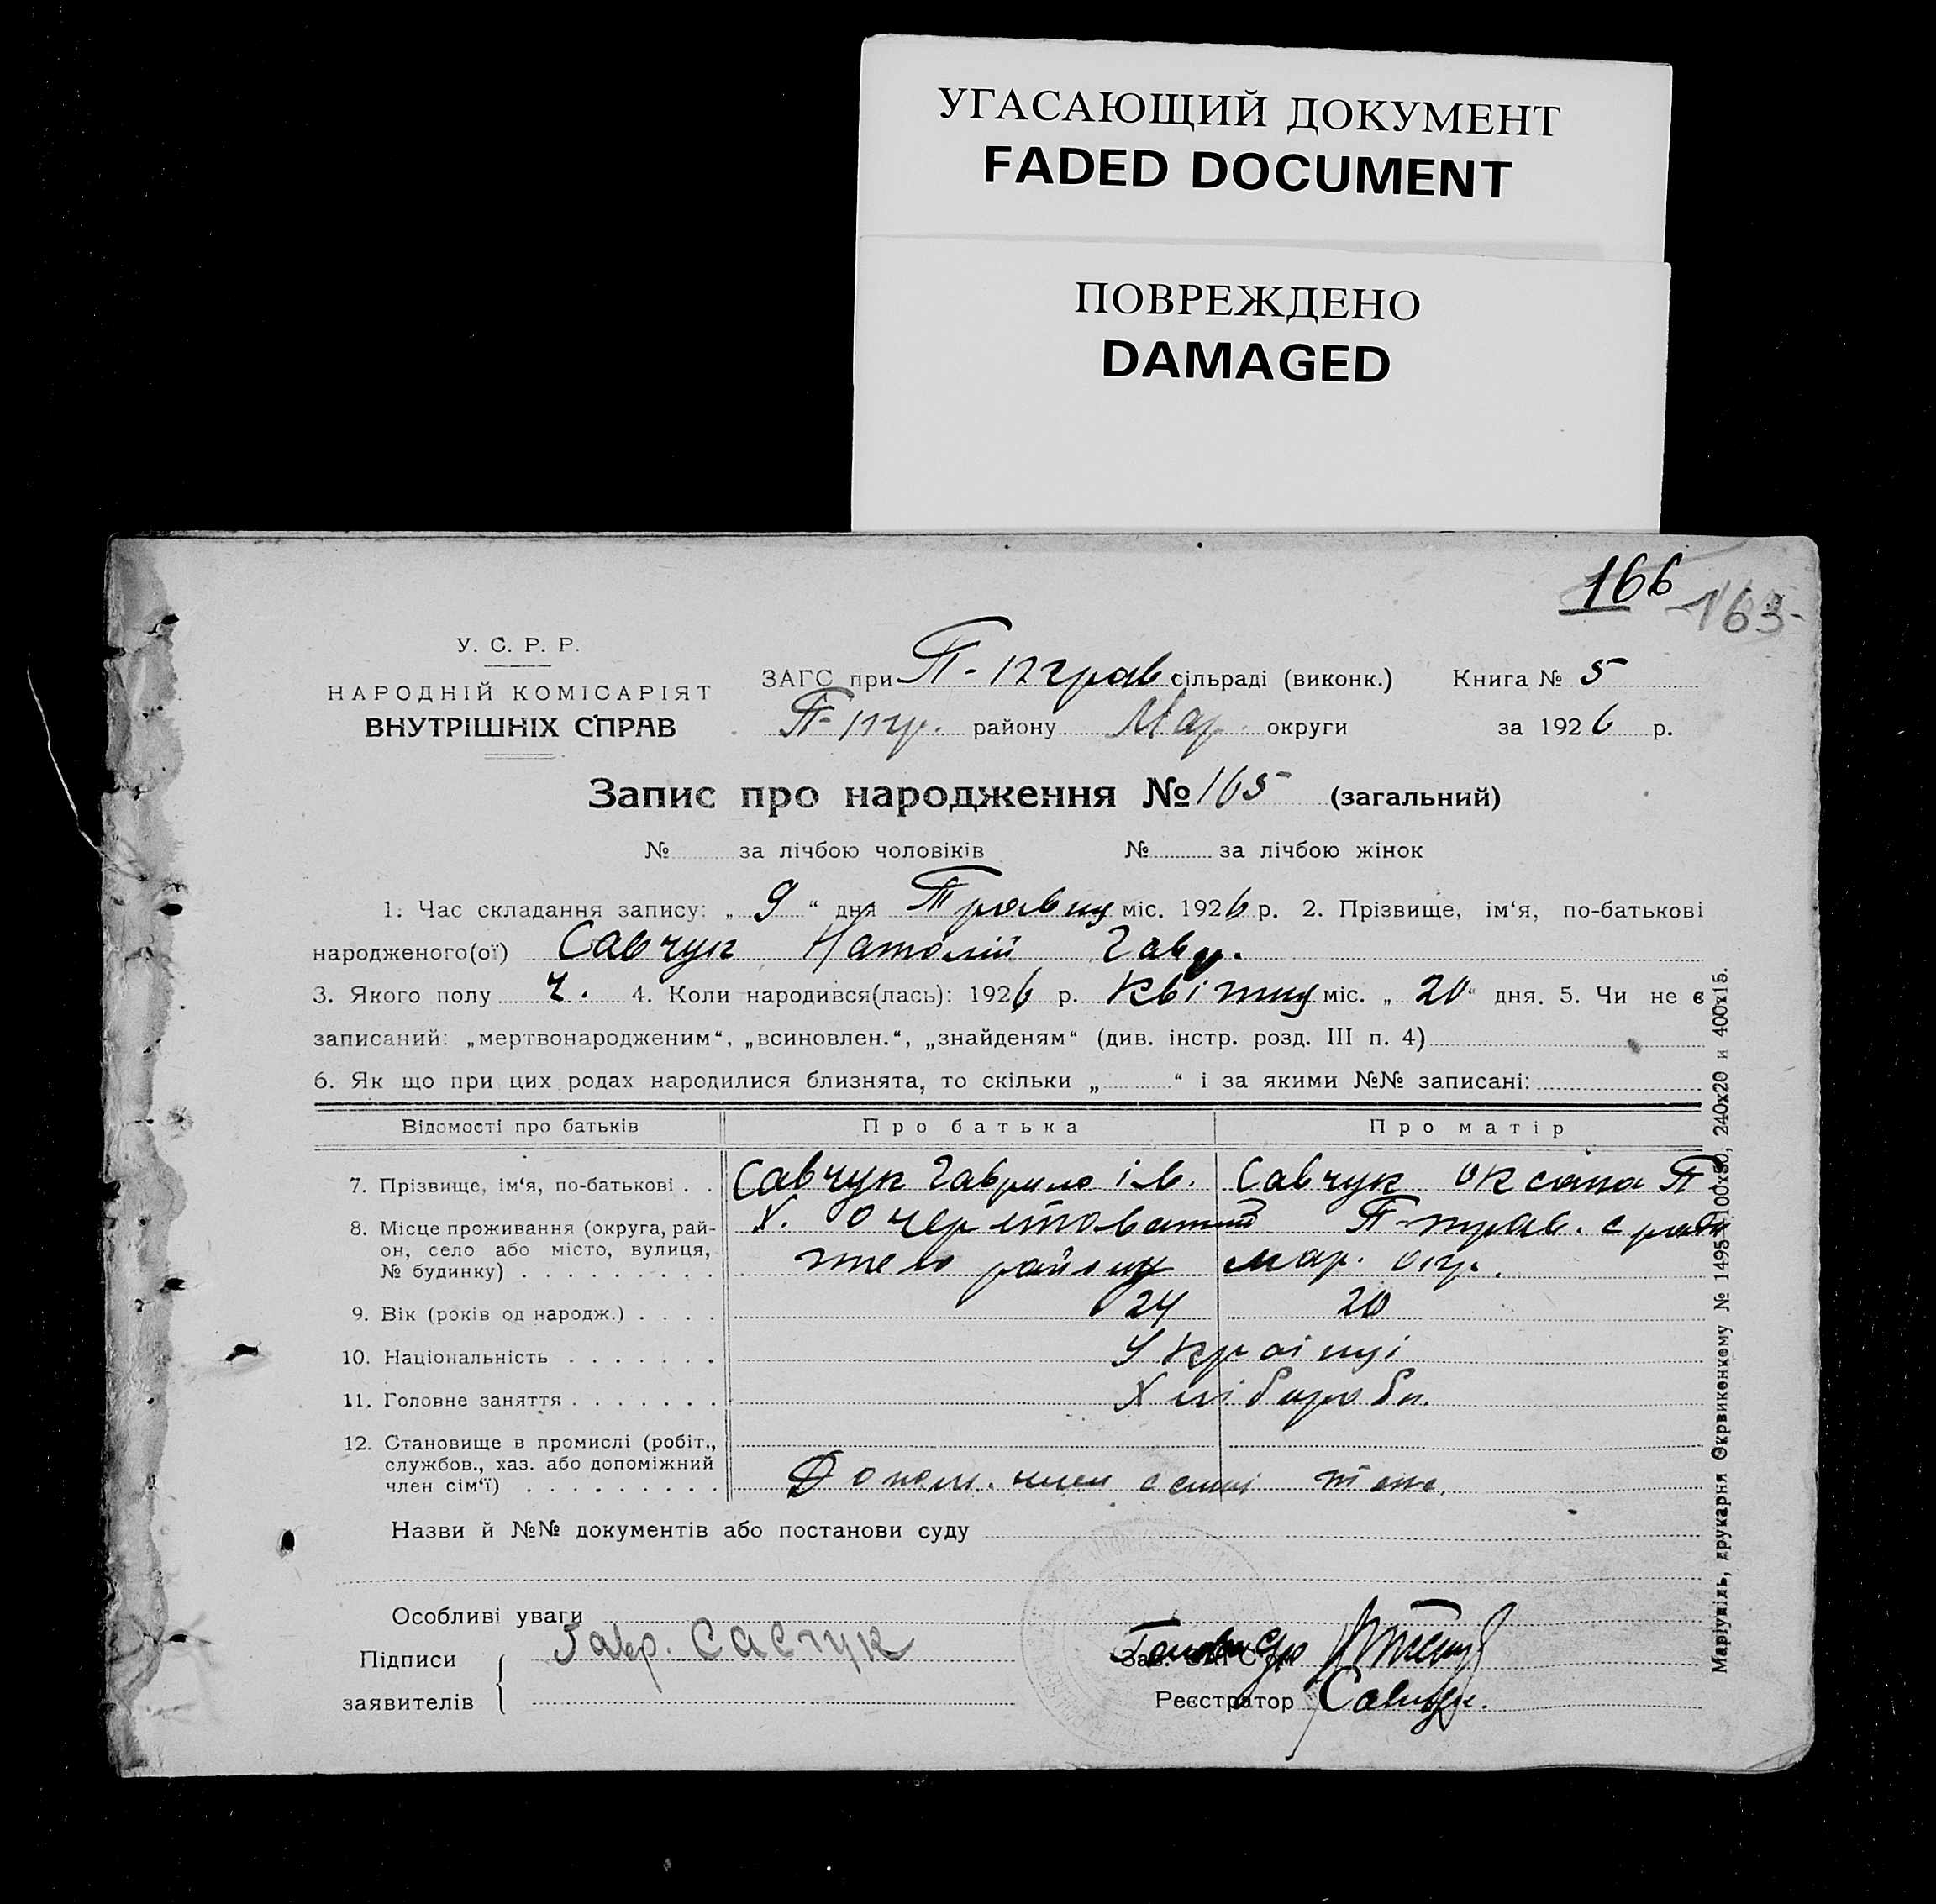 УГАСАЮЩИЙ ДОКУМЕНТ
FADED DOCUMENT
ПОВРЕЖДЕНО
DAMAGED
166 163
У. С. Р. Р.
НАРОДНІЙ КОМІСАРІЯТ
ВНУТРІШНІХ СПРАВ
ЗАГС при сільраді (виконк.) Книга № 5
району Мар. округи за 1926 р.
Запис про народження № 165 (загальний)
№ за лічбою чоловіків № за лічбою жінок
1. Час складання запису: „ 9 “ дня Травня міс. 1926 р. 2. Прізвище, ім‘я, по-батькові
народженого(ої) Савчук Натолій Гавр.
3. Якого полу ч. 4. Коли народився(лась): 1926 р. Квітня міс. „ 20 “ дня. 5. Чи не є
записаний: „мертвонародженим“, „всиновлен.“, „знайденям“ (див. інстр. розд. III п. 4)
6. Як що при цих родах народилися близнята, то скільки „ “ і за якими №№ записані:
Відомості про батьків Про батька Про матір
7. Прізвище, ім‘я, по-батькові Савчук Гаврило Ів. Савчук Оксана П
8. Місце проживання (округа, рай-
он, село або місто, вулиця,
№ будинку)
Х. П-трав. с ради
того району мар. окр.
9. Вік (років од народж.) 24 20
10. Національність Українці
11. Головне заняття Хлібороби.
12. Становище в промислі (робіт.,
службов., хаз. або допоміжний
член сім‘ї)
Допом. член семї тож.
Назви й №№ документів або постанови суду
Особливі уваги
Підписи
заявителів
Гавр. Савчук
Зав. ЗАГС‘ом
Реєстратор
Маріупіль, друкарня Окрвиконкому № 1495—100х80, 240х20 и 400х15.